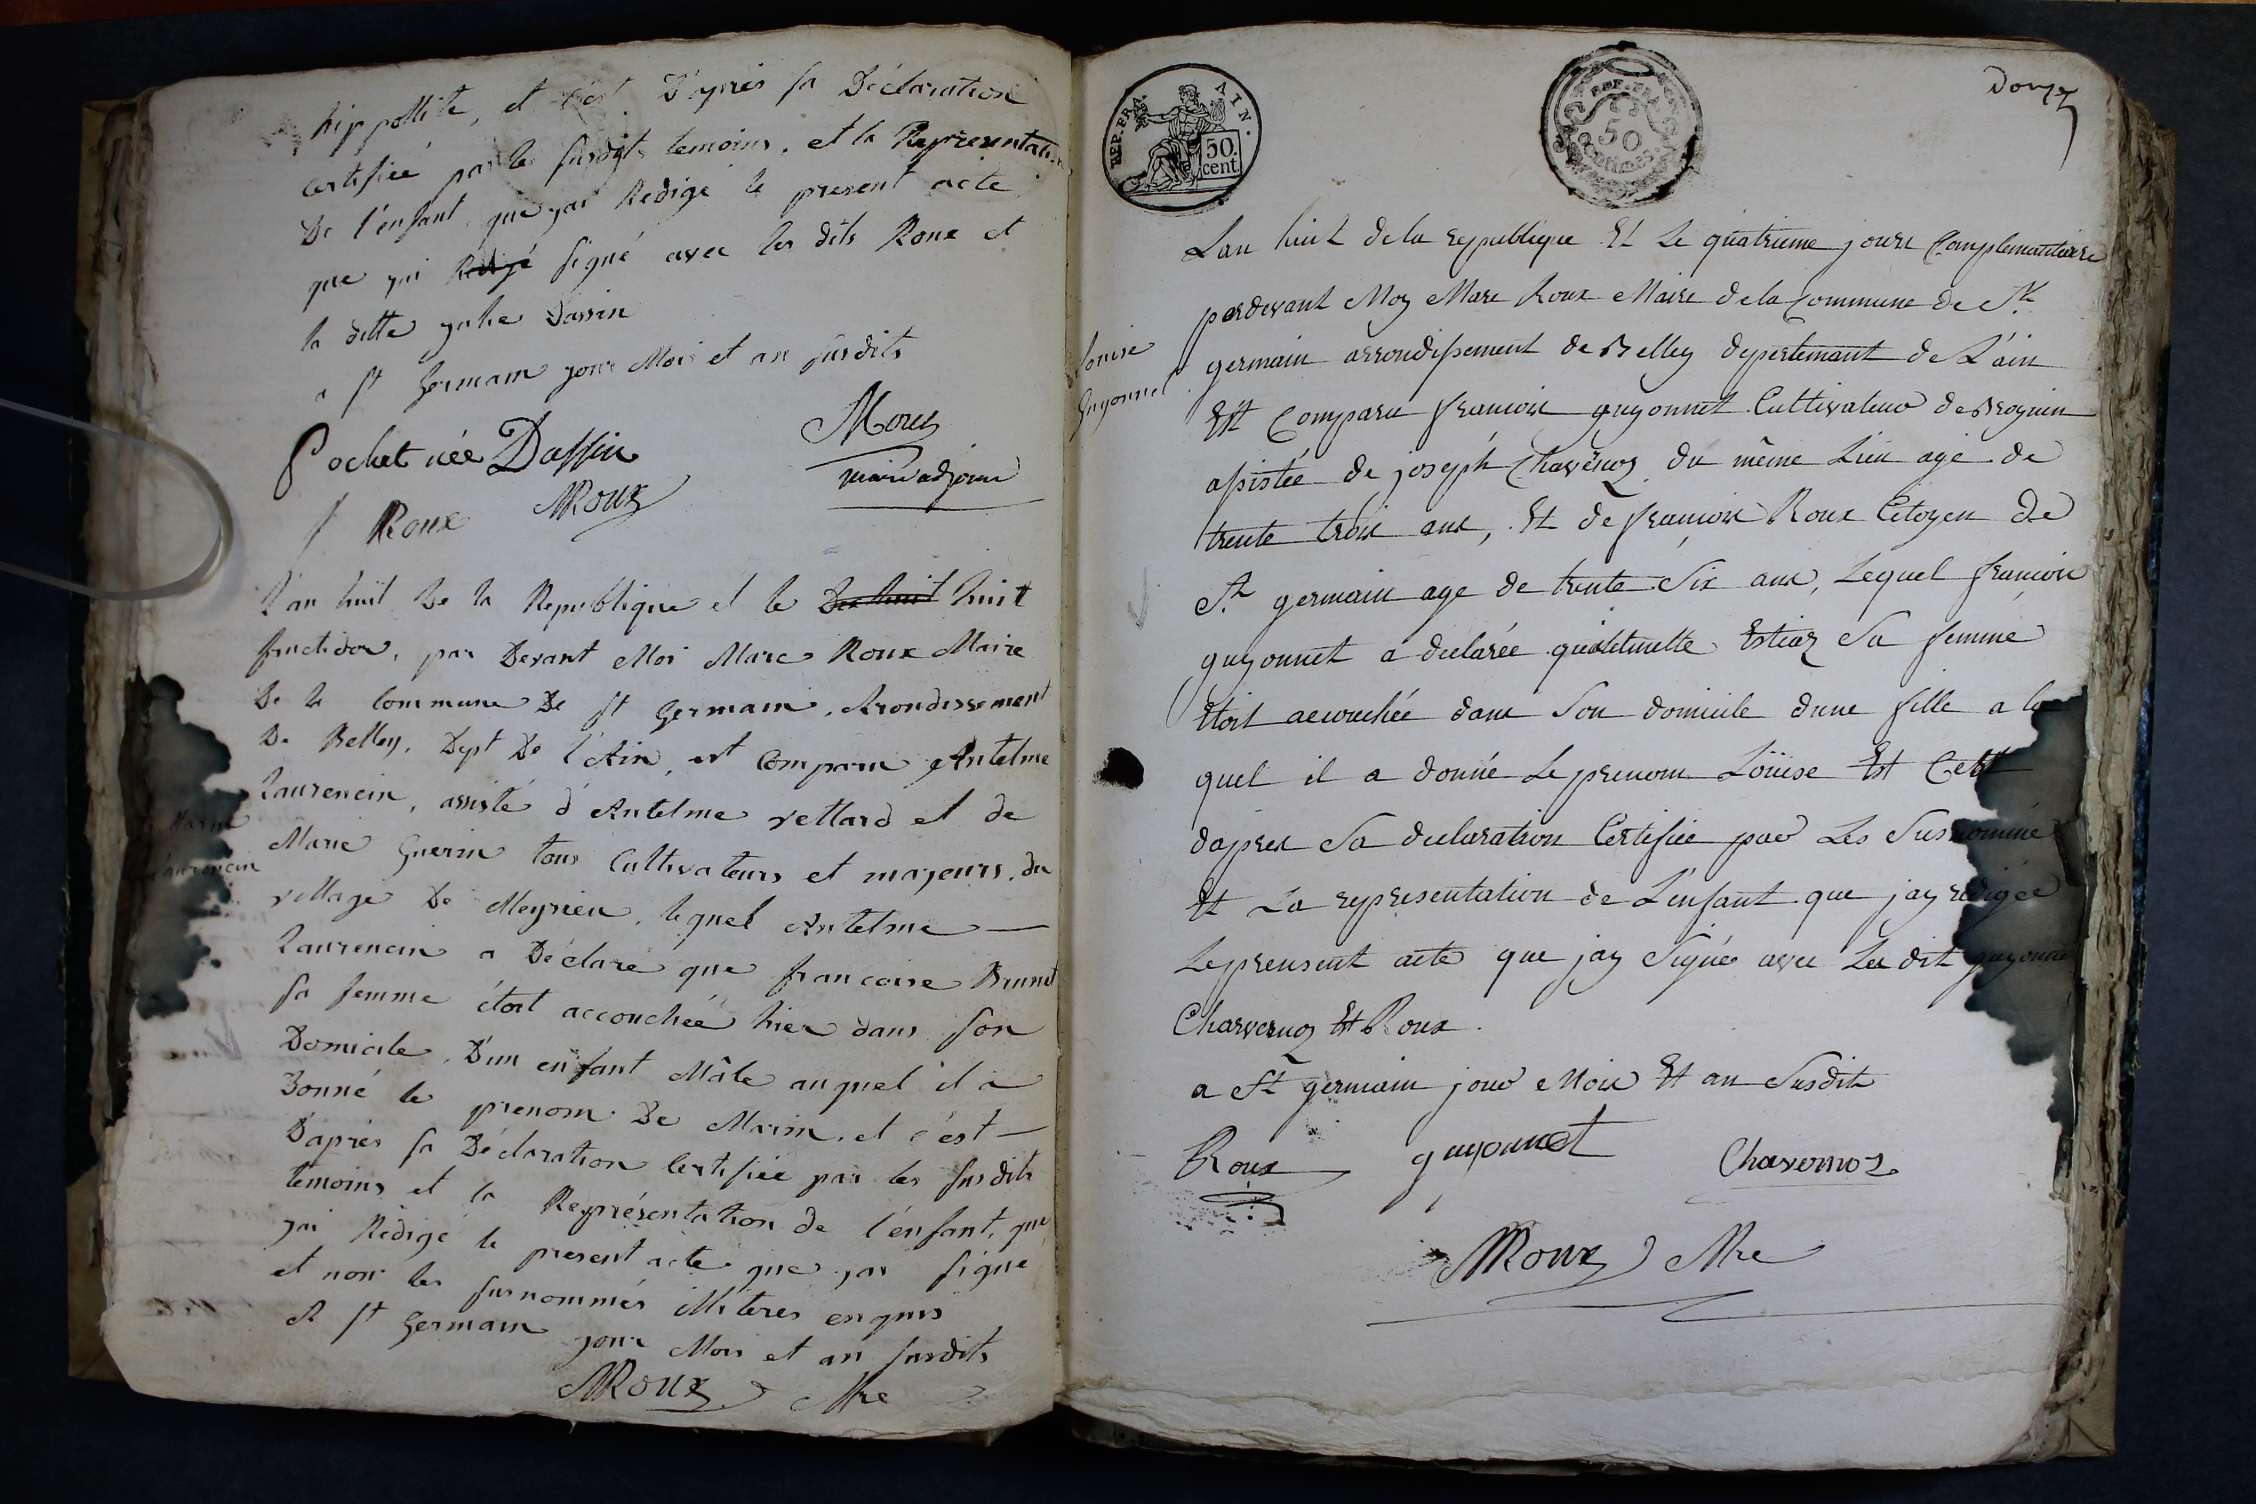 hippollite, et c'est D'après sa Déclaration
certifiée par les susdits temoins, et la Representation
De l'enfant que jai Redigé le present acte
que jai Redigé signé avec les dits Roux et
la ditte julie Dassin
a st Germain jour Mois et an susdits
Pochet née Dassin
Morel
maire adjoint
f Roux MRoux
L'an huit De la Republique et le Dix huit huit
fructidor, par Devant Moi Marc Roux Maire
De la Commune De st Germain, Arondissement
De Belley, Dept De l'Ain, est Comparu Antelme
Laurencin, assisté d'Antelme vettard et de
Marie Guerin tous Cultivateurs et majeurs, du
village De Meyrieu, lequel Antelme
Laurencin a Déclaré que francoise Brunet
sa femme étoit accouchée hier dans son
Domicile D'un enfant Mâle auquel il a
Donné le prenom De Marin, et c'est
D'après sa Déclaration certifiée par les susdits
temoins et la Représentation de l'enfant, que
jai Rédigé le present acte que jai signé
et non les surnommés illiteres enquis
A st Germain jour Mois et an susdits
MRoux Mre
Marin
Laurencin
REP. FRA. AIN.
50.
cent.
REP. FRA.
50
Centimes
Douze
Lan huit de la republique Et Le quatrieme jour Complementaire
pardevant Moy Marc Roux Maire dela Commune de St
germain arrondissement de Belley departemant de L'ain
Est Comparu francois guyonnet Cultivateur de Brognin
assistée de joseph Chavernoz du même Lieu agé de
trente trois ans, Et de francois Roux Citoyen de
St germain age de trente Six ans, Lequel francois
guyonnet a declarée Sa femme
Etoit accouchée dans Son domicile dune fille a la
quel il a donnée Le prenom Löuise Et Cest
dapres Sa declaration Certifiée par Les Susnommé
Et La representation de L'enfant que jay redigée
Lepreusent acte que jay Signée avec Les dit guyonnet
Charvernoz Et Roux
a St germain jour Mois Et an Susdit
Roux guyonnet Chavernoz
MRoux Mre
Louise
Guyonnet